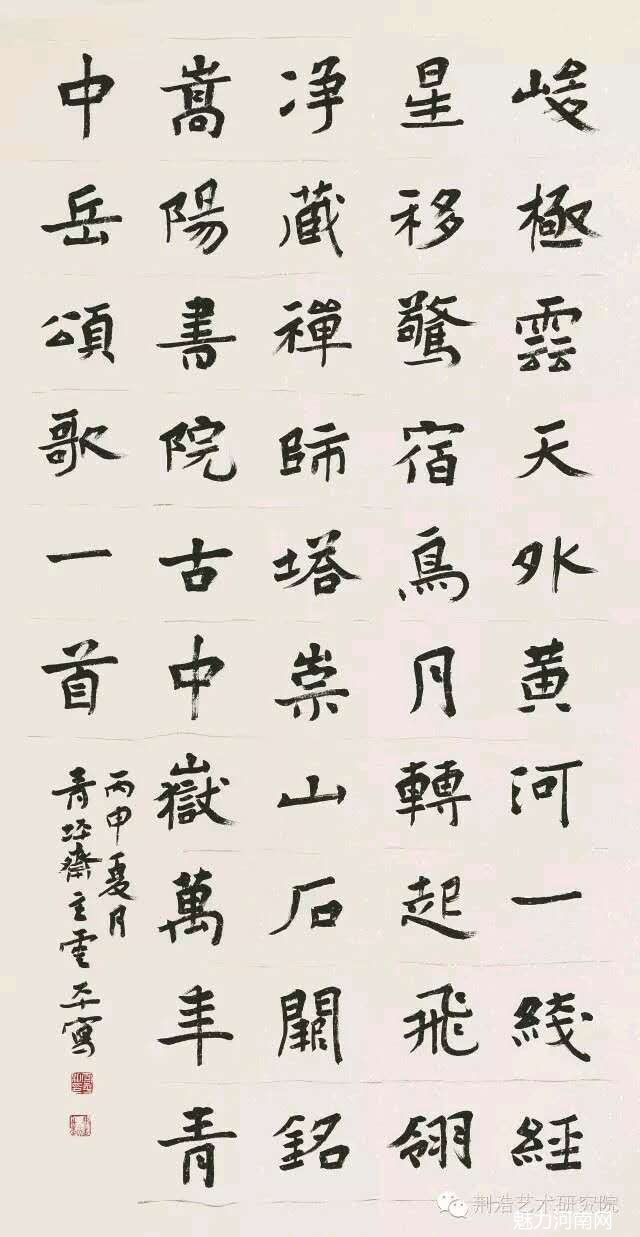 峻極雲天外黄河一綫經
星移驚宿鳥月轉起飛翎
净藏禪師塔崇山石闕銘
嵩陽書院古中嶽萬年青
中岳頌歌一首
丙申夏月
青坪齋主雲平寫
荆浩艺术研究院
魅力河南网